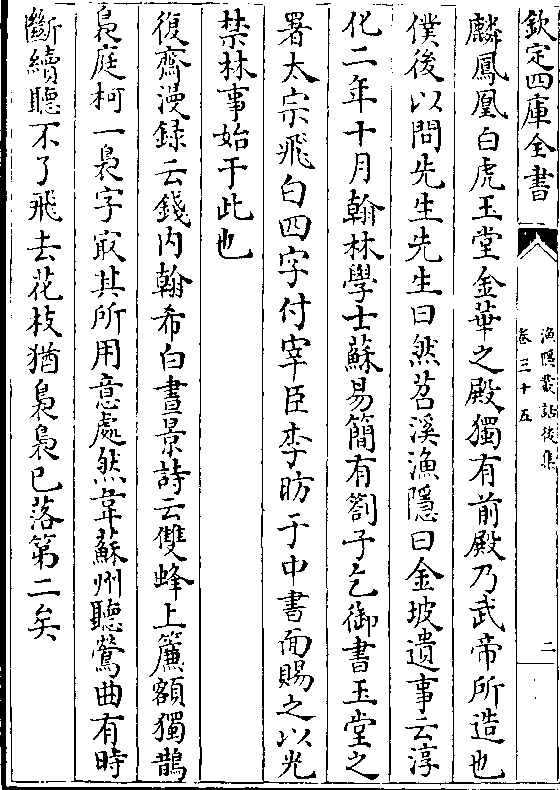 欽定四庫全書
漁隱叢話後集
卷三十五
二
麟鳳凰白虎玉堂金華之殿獨有前殿乃武帝所造也
僕後以問先生先生曰然苕溪漁隱曰金坡遺事云淳
化二年十月翰林學士蘇易簡有劄子乞御書玉堂之
署太宗飛白四字付宰臣李昉于中書面賜之以光
禁林事始于此也
復齋漫録云錢内翰希白晝景詩云雙蜂上簾額獨鵲
裊庭柯一裊字㝡其所用意處然韋蘇州聽鶯曲有時
斷續聽不了飛去花枝猶裊裊已落第二矣